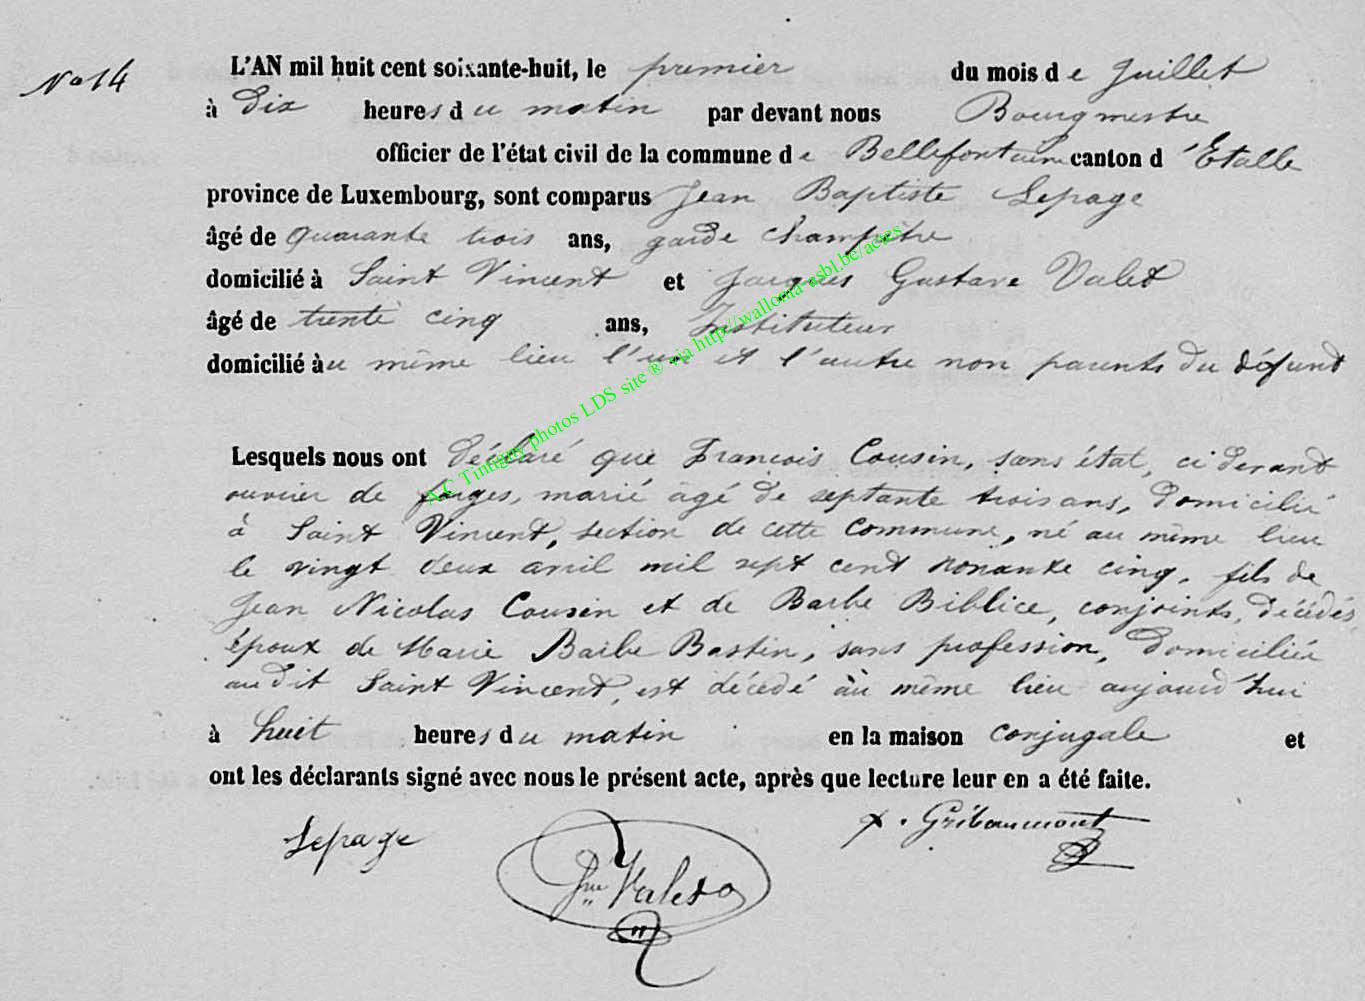 No 14
L'AN mil huit cent soixante-huit, le premier du mois de Juillet
à Dix heures du matin par devant nous Bourgmestre
officier de l'état civil de la commune de Bellefontaine canton d'Etalle
province de Luxembourg, sont comparus Jean Baptiste Lepage
âgé de quarante trois ans, garde champêtre
domicilié à Saint Vincent et Jacques Gustave Valet
âgé de trente cinq ans, Instituteur
domicilié au même lieu l'un et l'autre non parents du défunt
Lesquels nous ont déclaré que François Cousin, sans état, ci devant
ouvrier de forges, marié âgé de septante trois ans, domicilié
à Saint Vincent, section de cette commune, né au même lieu
le vingt deux avril mil sept cent nonante cinq, fils de
Jean Nicolas Cousin et de Barbe Biblice, conjoints, décédés,
époux de Marie Barbe Bastin, sans profession, domiciliée
au dit Saint Vincent, est décédé au même lieu aujourd'hui
à huit heures du matin en la maison conjugale et
ont les déclarants signé avec nous le présent acte, après que lecture leur en a été faite.
Lepage Valet Gribaumont
A.C Tintigny photos LDS site ® via http://wallonia-asbl.be/actes